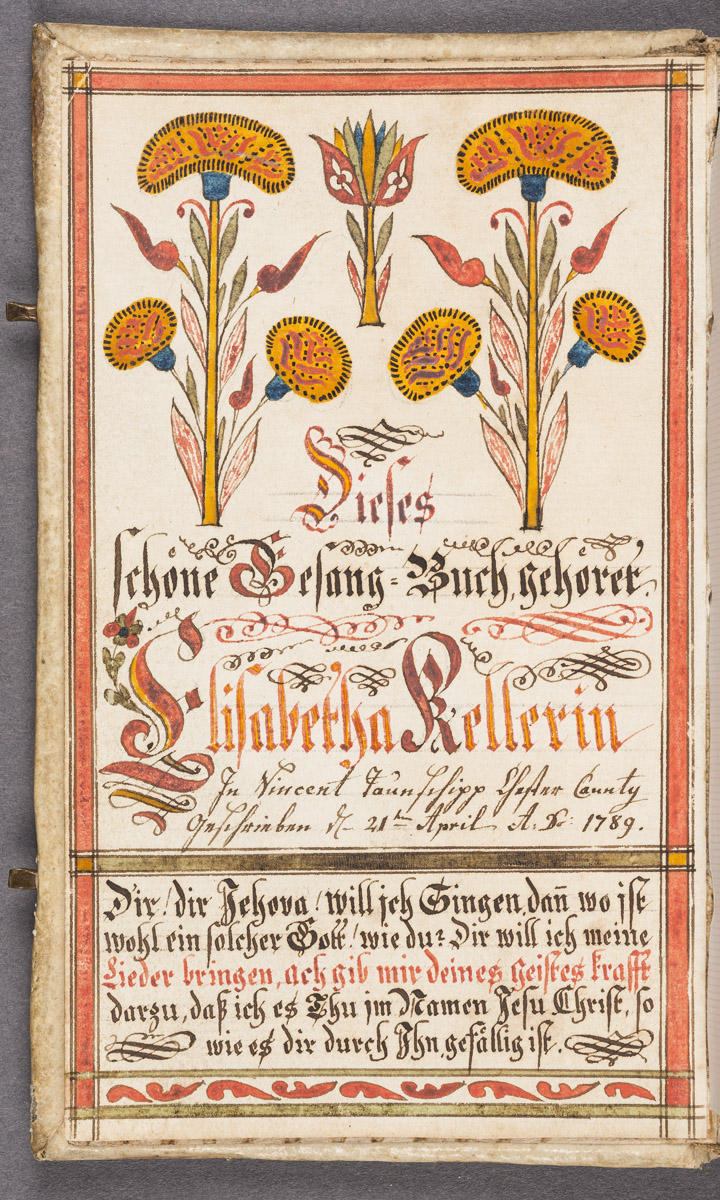 Dieses
schöne Gesang-Buch, gehöret
Elisabetha Kellerin
In Vincent Taunschipp Chester Caunty
Geschrieben d– 21ten April A: D: 1789.
Dir / dir Jehova / will jch Singen, dañ wo jst
wohl ein solcher Gott / wie du? Dir will ich meine
Lieder bringen, ach gib mir deines geistes krafft
darzu, daß ich es Thu jm Namen Jesu Christ, so
wie es dir durch Jhn, gefällig ist.